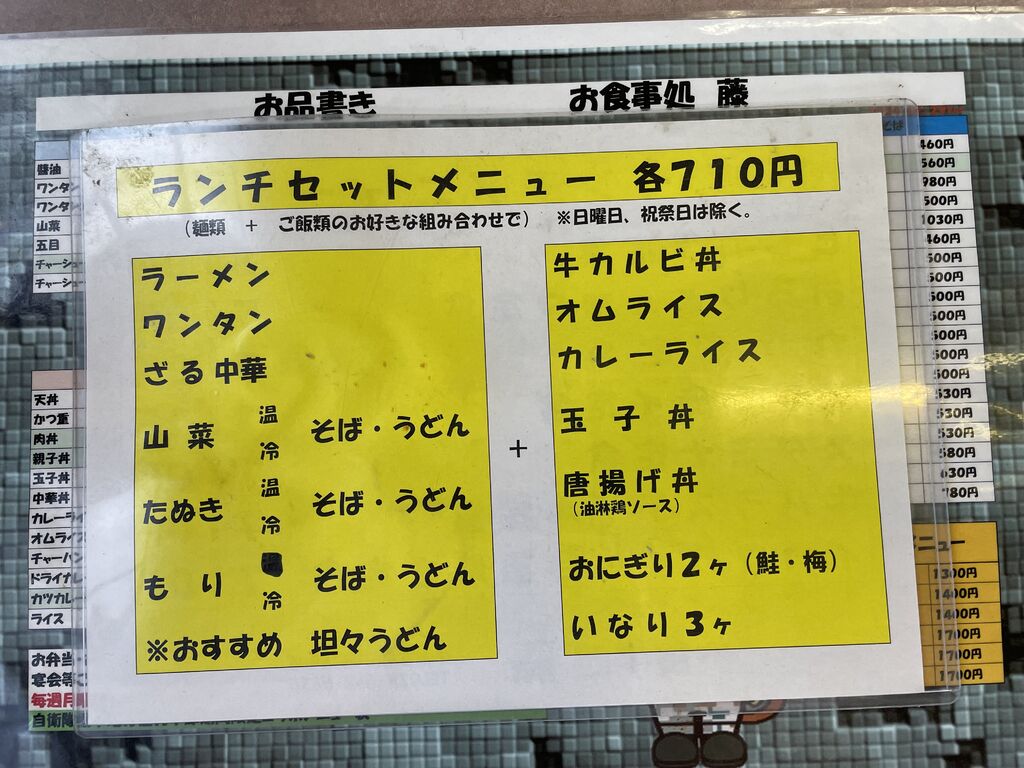 お品書き お食事処 藤
ランチセットメニュー 各710円
(麺類 + ご飯類のお好きな組み合わせで) ※日曜日、祝祭日は除く。
ラーメン
ワンタン
ざる中華
山菜 温 冷 そば・うどん
たぬき 温 冷 そば・うどん
もり 冷 そば・うどん
※おすすめ 坦々うどん
+
牛カルビ丼
オムライス
カレーライス
玉子丼
唐揚げ丼
(油淋鶏ソース)
おにぎり2ヶ(鮭・梅)
いなり3ヶ
醤油
ワンタン
ワンタン
山菜
五目
チャーシュ
チャーシュ
天丼
かつ重
肉丼
親子丼
玉子丼
中華丼
カレーライ
オムライ
チャーハン
ドライカレ
カツカレ
ライス
お弁当
宴会等
毎週月
自衛隊
460円
560円
980円
500円
1030円
460円
500円
500円
500円
500円
500円
500円
500円
530円
530円
530円
580円
630円
780円
ニュー
1300円
1400円
1400円
1700円
1700円